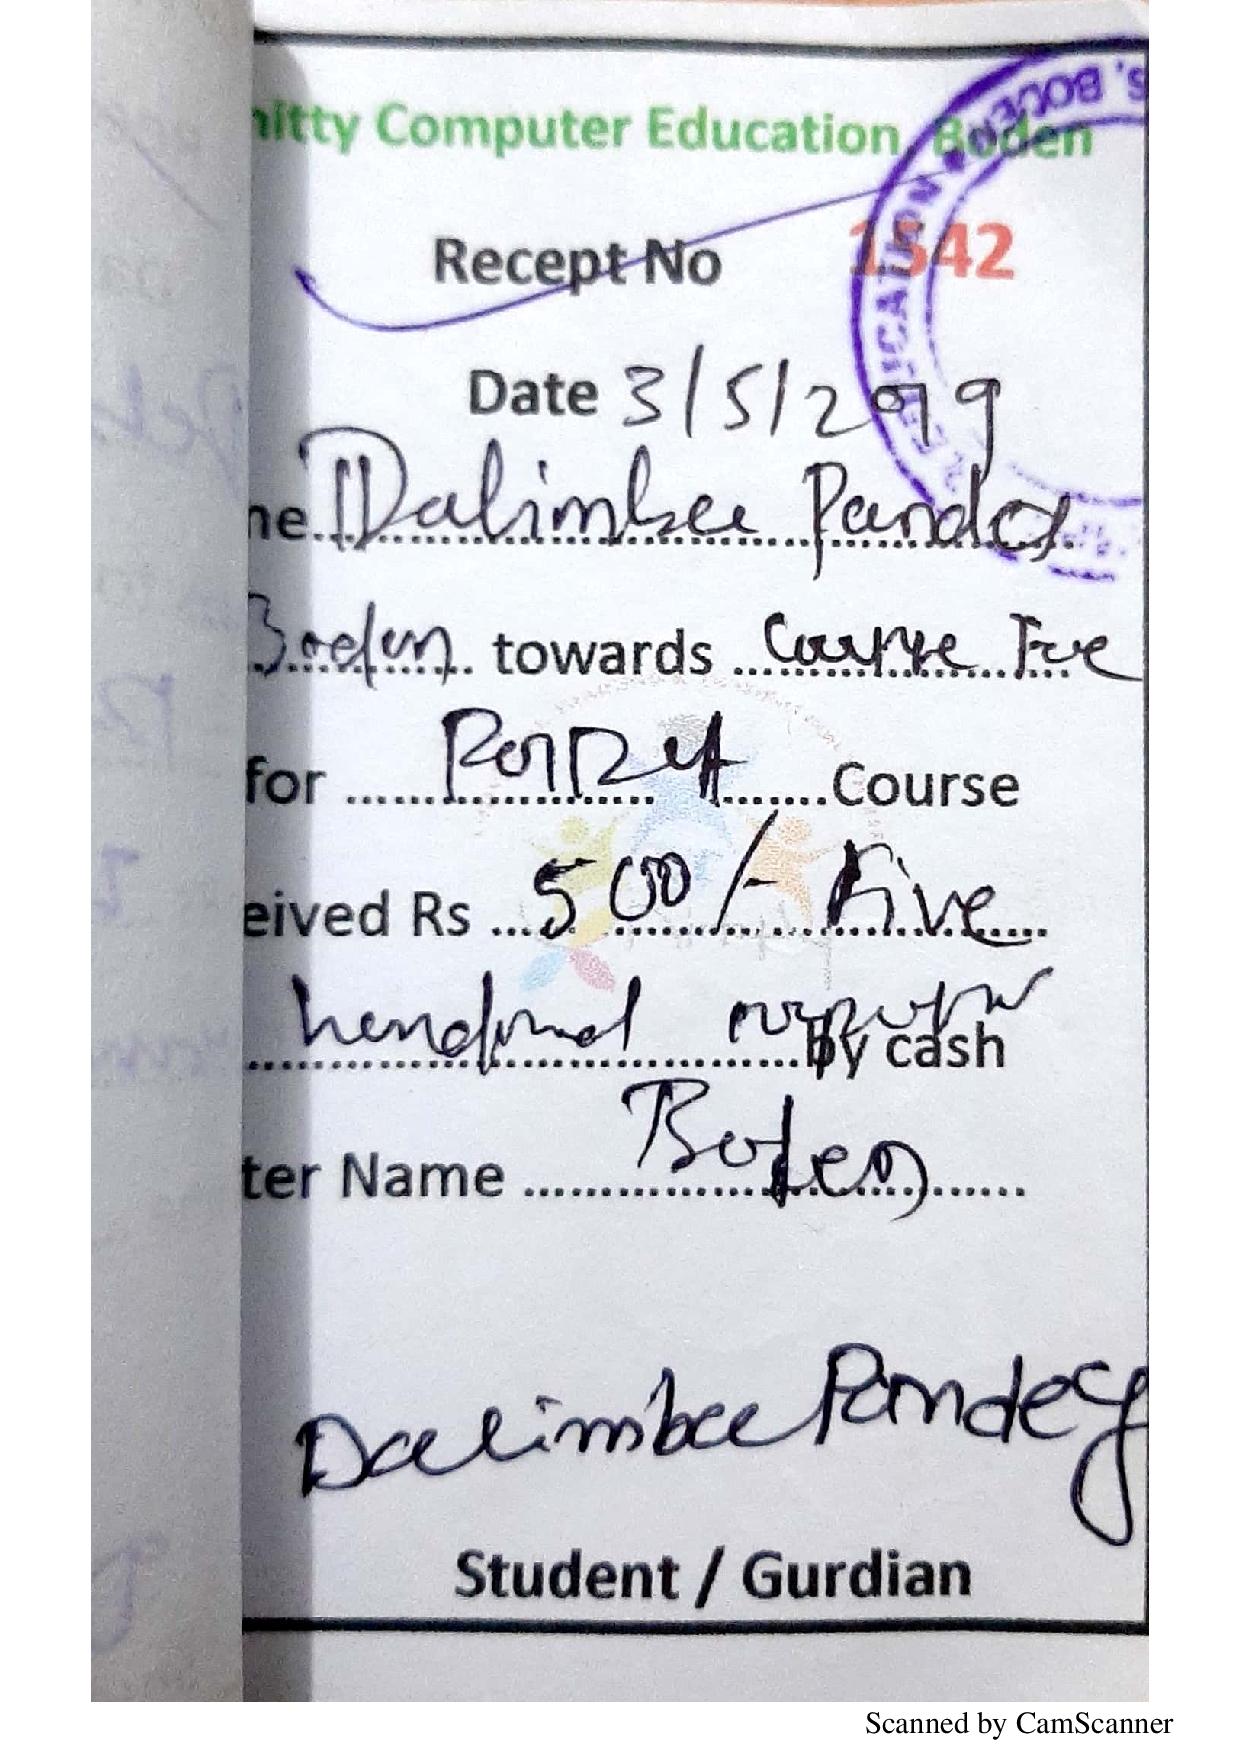 nitty Computer Education, Boden
Recept No 1542
Date 3/5/2019
ne Dalimbee Pandey
Boden towards Course Fee
for Course
eived Rs 500/- Five
hendred by cash
ter Name Boden
Dalimbee Pandey
Student / Gurdian
Scanned by CamScanner